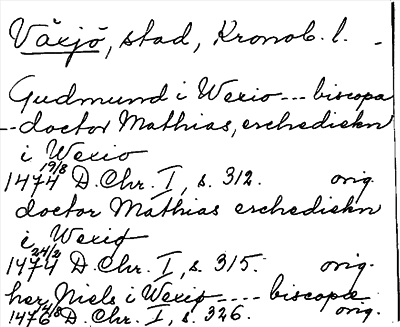 Växjö, stad, Kronob. l.
Gudmund i Wexio --- biscopa
-- doctor Mathias, erchediekn
i Wexio
1474 19/8 D. Chr. I, s. 312. orig.
doctor Mathias erchediekn
i Wexio
1474 24/2 D. Chr. I, s. 315. orig.
her Niels i Wexio ---- biscopæ
1476 4/8 D. Chr. I, s. 326. orig.